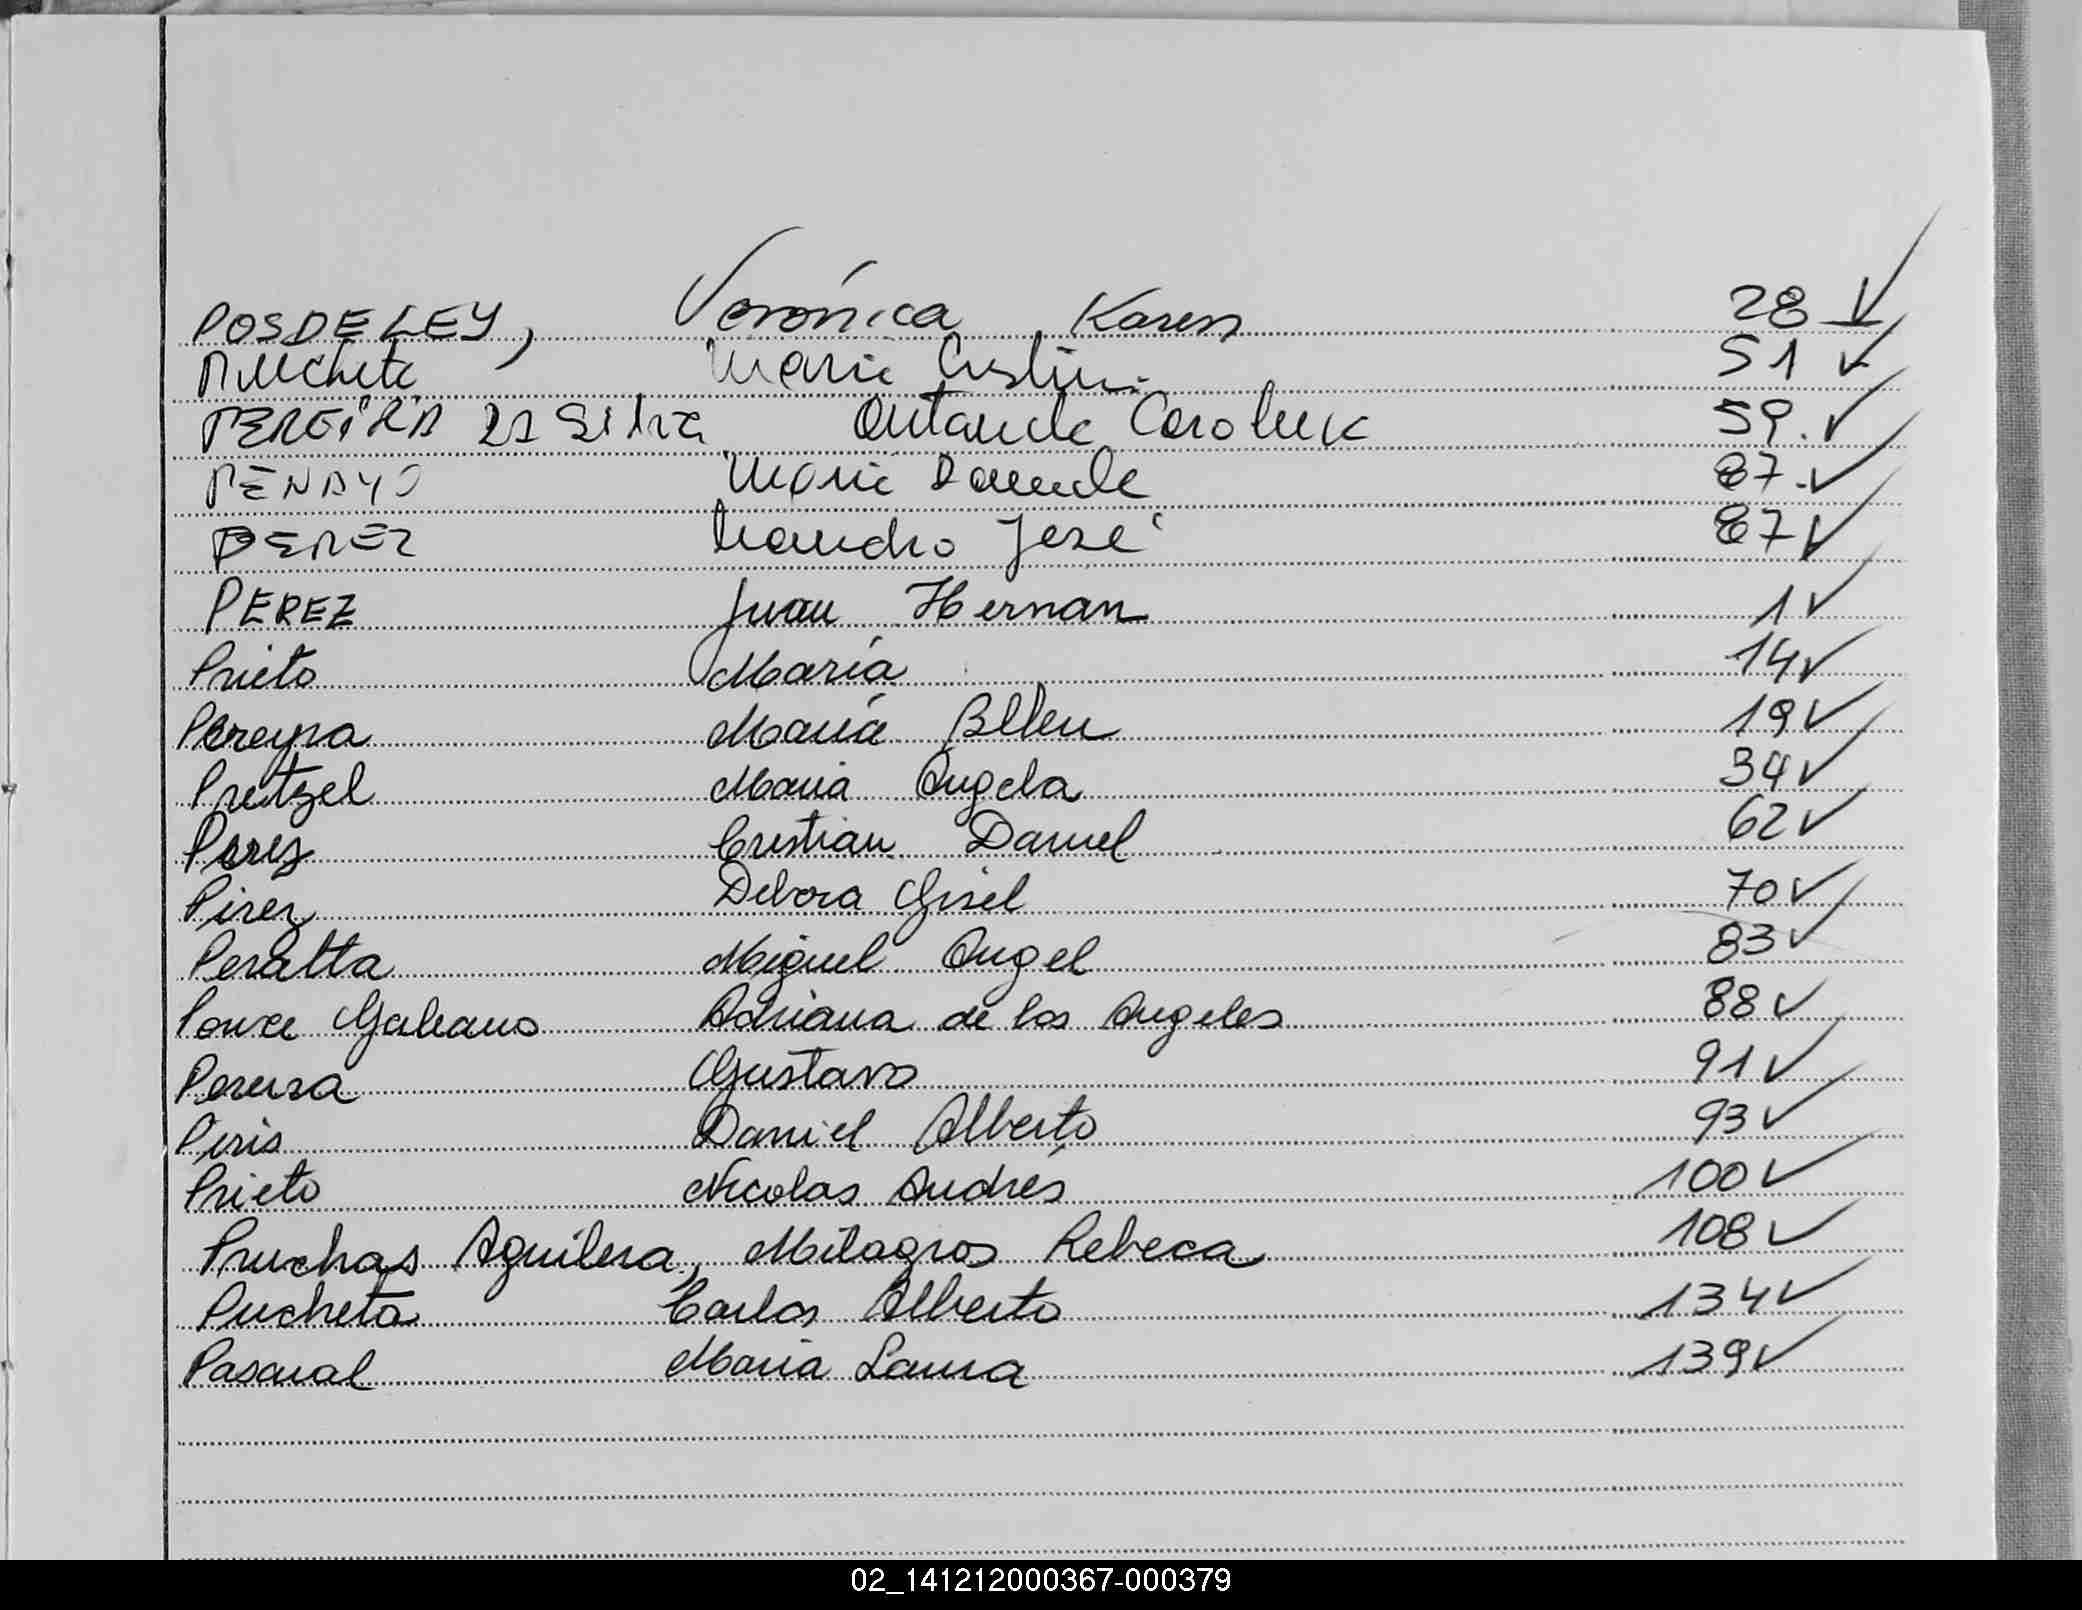 POSDELEY, Verónica Karen 28
Pucheta María Cristina 51
PEREIRA DA Silva Carolina 59.
PENAYO María 87.
PEREZ Leandro José 87
PEREZ Juan Hernan 1
Prieto María 14
Pereyra María Belen 19
Pretzel Maria Angela 34
Perez Cristian Daniel 62
Pirez Debora Gisel 70
Peralta Miguel Angel 83
Ponce Galeano Adriana de los Angeles 88
Pereira Gustavo 91
Piris Daniel Alberto 93
Prieto Nicolas Andrés 100
Pruchas Aguilera, Milagros Rebeca 108
Pucheta Carlos Alberto 134
Pascual Maria Laura 139
02_141212000367-000379